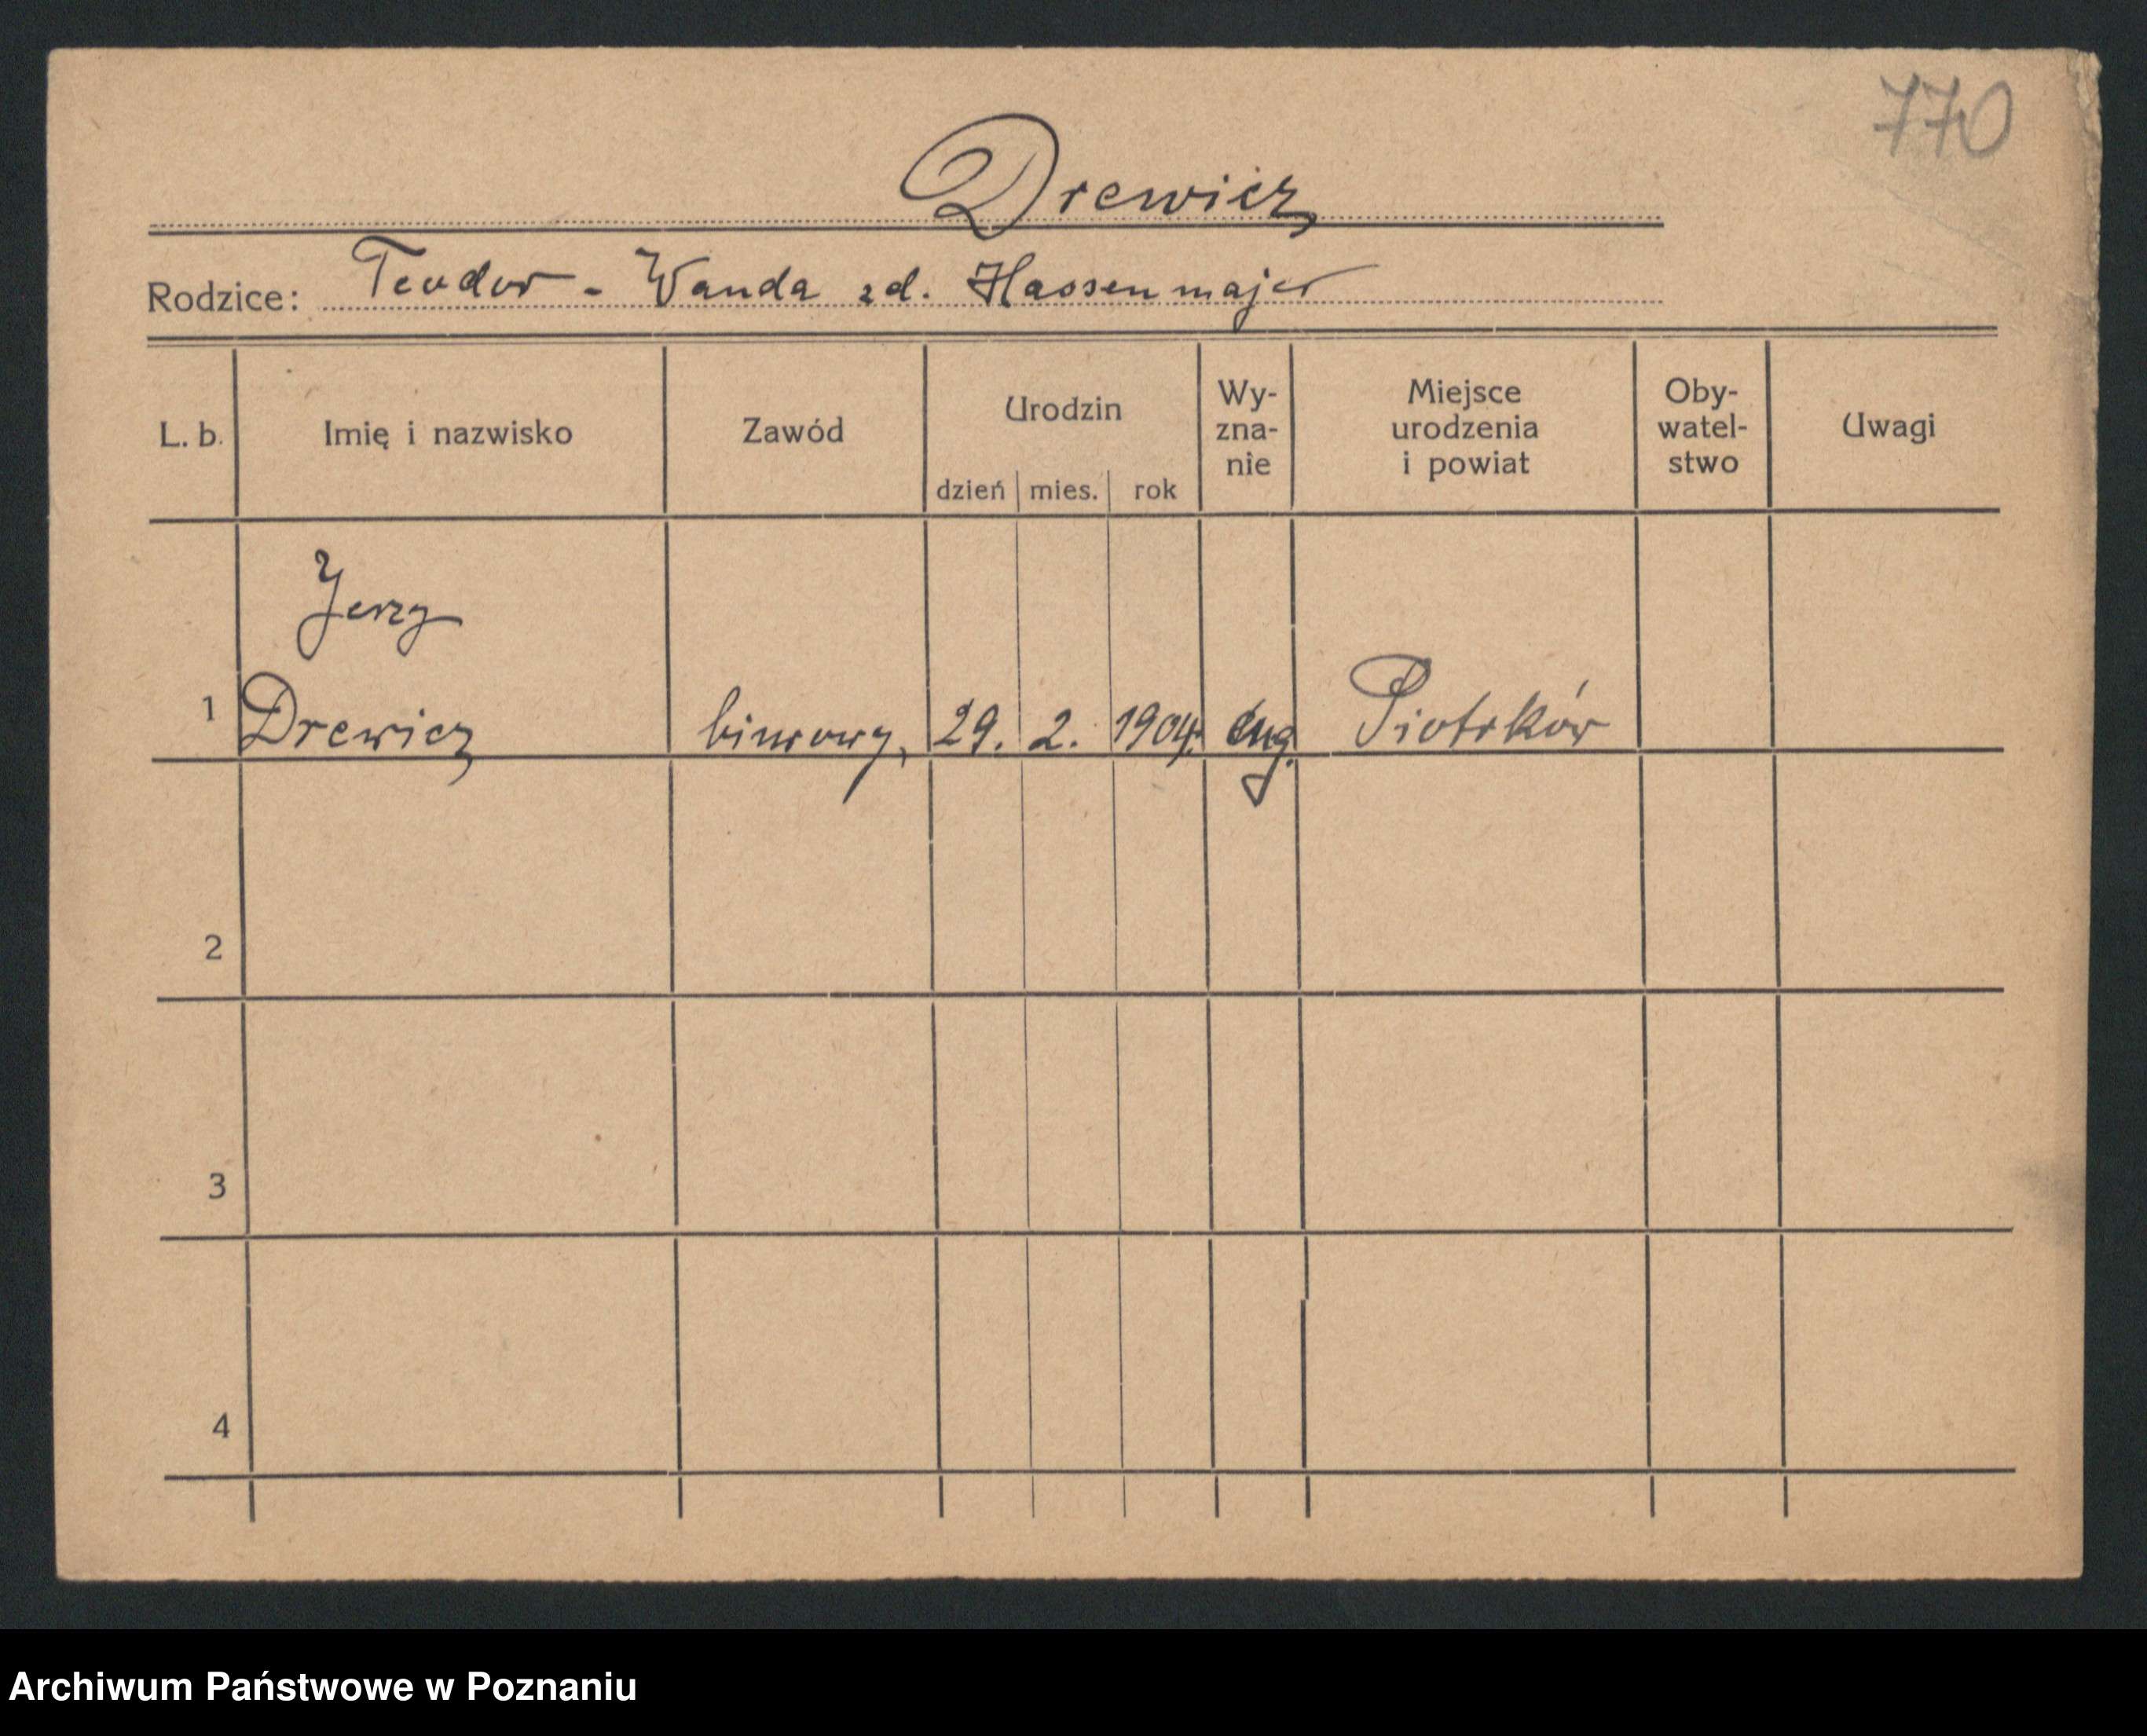 770
Drewicz
Rodzice: Teodor - Wanda zd. Hassenmajer
L. b. Imię i nazwisko Zawód Urodzin dzień mies. rok Wy-zna-nie Miejsce urodzenia i powiat Oby-watel-stwo Uwagi
Jerzy
1 Drewicz biurowy, 29. 2. 1904. Piotrków
2
3
4
Archiwum Państwowe w Poznaniu